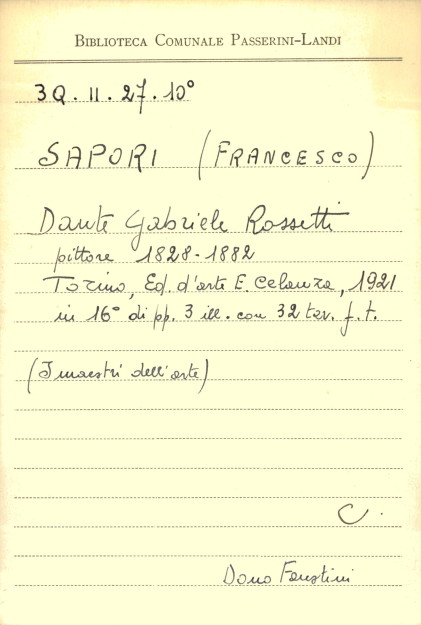 BIBLIOTECA COMUNALE PASSERINI-LANDI
3Q. II. 27. 10°
SAPORI (FRANCESCO)
Dante Gabriele Rossetti
pittore 1828-1882
Torino, Ed. d'arte E. Celanza, 1921
in 16° di pp. 3 ill. con 32 tav. f. t.
(I maestri dell'arte)
C.
Dono Faustini